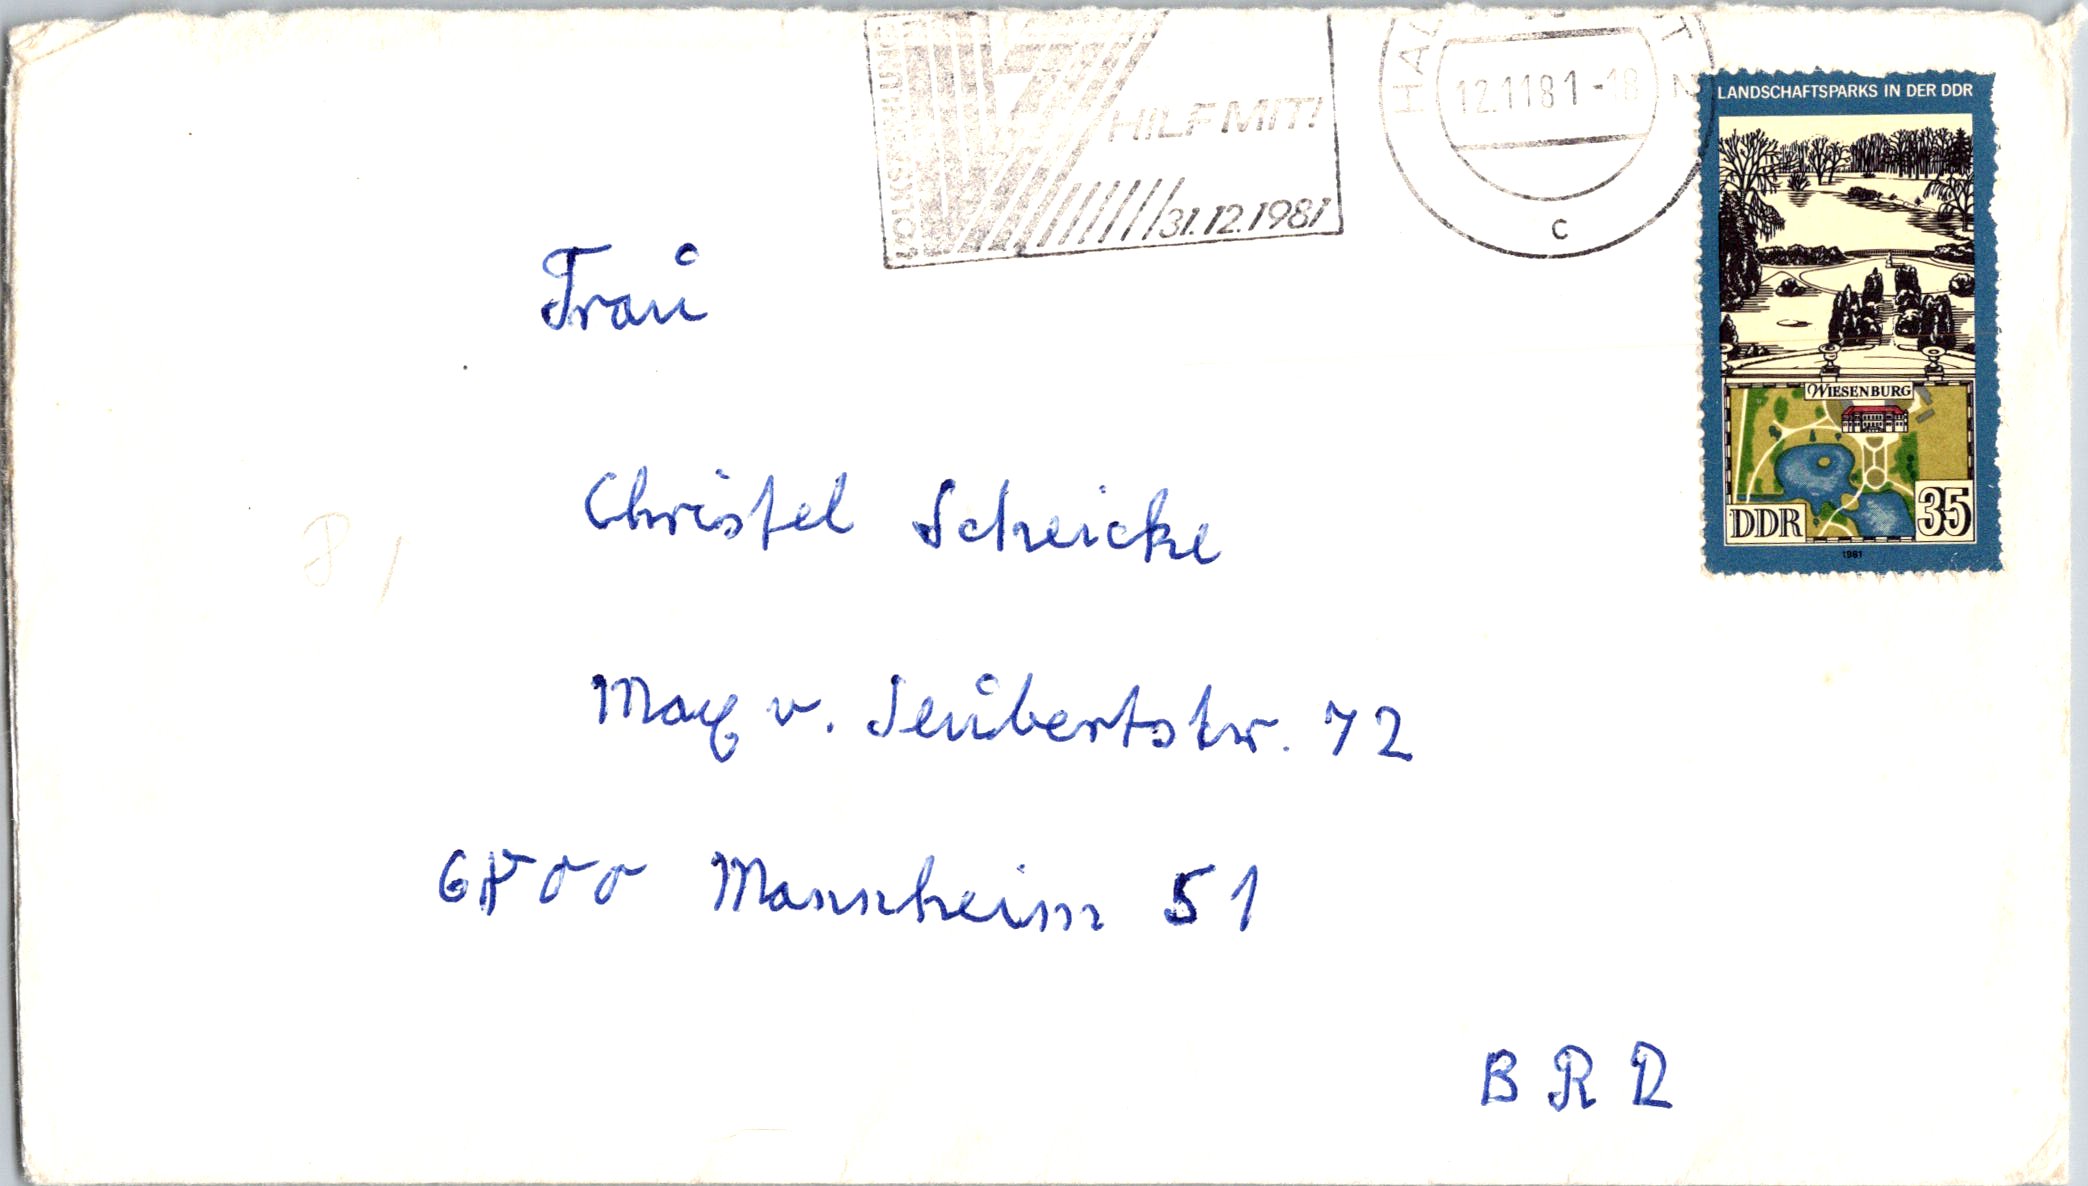 VOLKSZÄHLUNG
HILF MIT!
31.12.1981
12.11.81-18
c
LANDSCHAFTSPARKS IN DER DDR
WIESENBURG
DDR
35
1981
Frau
Christel Scheicke
Max v. Seubertstr. 72
6800 Mannheim 51
BRD